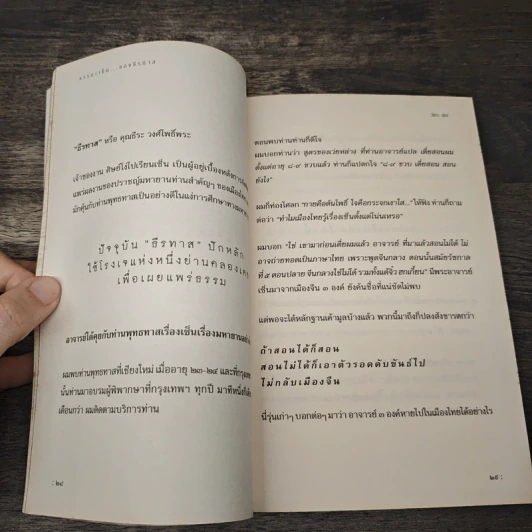 "ธีรทาส" หรือ คุณธีระ วงศ์โพธิ์พระ
เจ้าของงาน ศิษย์โง่ไปเรียนเซ็น เป็นผู้อยู่เบื้องหลังการ
แพร่ผลงานของปราชญ์มหายานท่านสำคัญๆ ของเมือง
มักคุ้นกับท่านพุทธทาสเป็นอย่างดีในแง่การศึกษาทาง
ปัจจุบัน "ธีรทาส" ปักหลัก
ใช้โรงเจแห่งหนึ่งย่านคลองเตย
เพื่อเผยแพร่ธรรม
อาจารย์ได้คุยกับท่านพุทธทาสเรื่องเซ็นเรื่องมหายาน
ผมพบท่านพุทธทาสที่เชียงใหม่ เมื่ออายุ ๒๓-๒๔ และที่
นั้นท่านมาอบรมผู้พิพากษาที่กรุงเทพฯ ทุกปี มาทีหนึ่ง
เดือนกว่า ผมติดตามบริการท่าน
: ๒๘
ตอนพบท่านท่านก็ดีใจ
ผมบอกท่านว่า สูตรของเว่ยหล่าง ที่ท่านอาจารย์แปล เตี่ยสอนผม
ตั้งแต่อายุ ๘-๙ ขวบแล้ว ท่านก็แปลกใจ "๘-๙ ขวบ เตี่ยสอน สอน
ยังไง"
ผมก็ท่องโศลก "กายคือต้นโพธิ์ ใจคือกระจกเงาใส..."ให้ฟัง ท่านก็ถาม
ต่อว่า "ทำไมเมืองไทยรู้เรื่องเซ็นตั้งแต่โน่นเหรอ"
ผมบอก "ใช่ เขามาก่อนเตี่ยผมแล้ว อาจารย์ ที่มาแล้วสอนไม่ได้ ไม่
อาจถ่ายทอดเป็นภาษาไทย เพราะพูดจีนกลาง ตอนนั้นสมัยรัชกาล
ที่ ๕ ตอนปลาย จีนกลางใช้ไม่ได้ รวมทั้งแต้จิ๋ว ฮกเกี้ยน" มีพระอาจารย์
เซ็นมาจากเมืองจีน ๓ องค์ ยังค้นชื่อที่แน่ชัดไม่พบ
แต่พอจะได้หลักฐานเค้ามูลบ้างแล้ว พวกนี้มาถึงก็ปลงสังขารตกว่า
ถ้าสอนได้ก็สอน
สอนไม่ได้ก็เอาตัวรอดดับขันธ์ไป
ไม่กลับเมืองจีน
นี่รุ่นเก่าๆ บอกต่อๆ มาว่า อาจารย์ ๓ องค์หายไปในเมืองไทยได้อย่างไร
๒๙ :